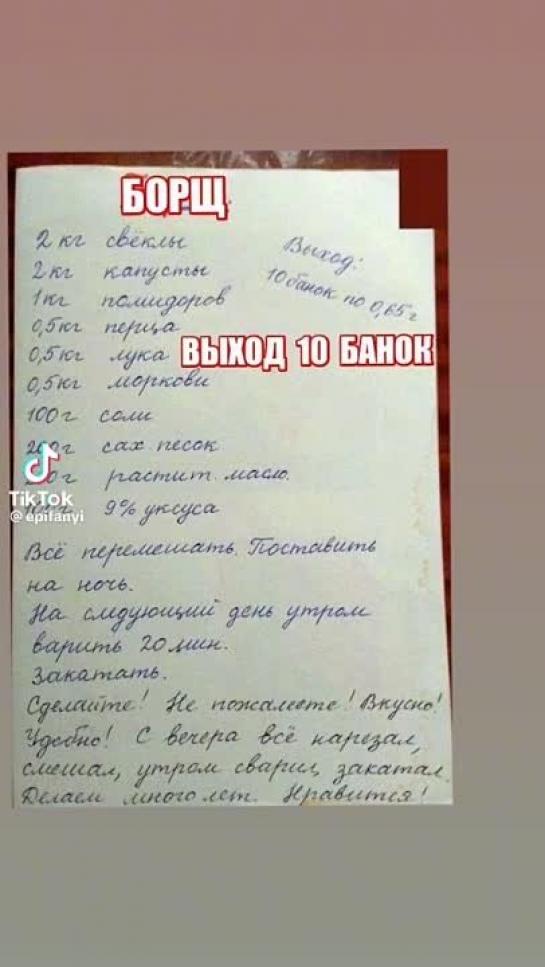 БОРЩ
2 кг свёклы
2 кг капусты
1 кг помидоров
0,5 кг перца
0,5 кг лука
0,5 кг моркови
100 г соли
сах. песок
растит. масло.
9% уксуса
Выход:
10 банок по 0,65 г
ВЫХОД 10 БАНОК
TikTok
@epifanyi
Всё перемешать. Поставить
на ночь.
На следующий день утром
варить 20 мин.
Закатать.
Сделайте! Не пожалеете! Вкусно!
Удобно! С вечера всё нарезал,
смешал, утром сварил, закатал.
Делаем много лет. Нравится!